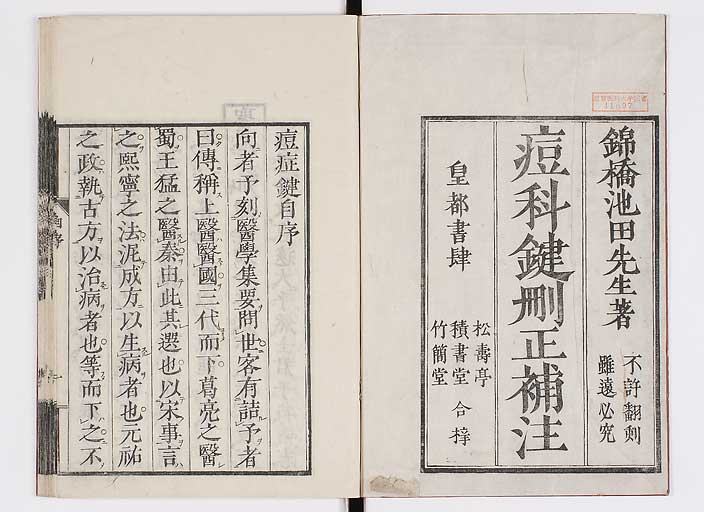 錦橋池田先生著
不許翻刻
雖遠必究
痘科鍵刪正補注
皇都書肆
松壽亭
積書堂
竹簡堂
合梓
痘症鍵自序
向者予刻醫學集要問世客有詰予者
曰傳稱上醫醫國三代而下葛亮之醫
蜀王猛之醫秦由此其選也以宋事言
之熙寧之法泥成方以生病者也元祐
之政執古方以治病者也等而下之不